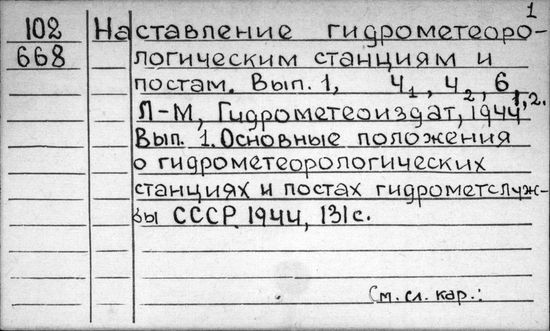 1
102 Наставление гидрометеоро-
668 логическим станциям и
постам. Вып. 1, Ч1, Ч2, 6,
Л-М, Гидрометеоиздат, 1944 1,2.
Вып. 1. Основные положения
о гидрометеорологических
станциях и постах гидрометслуж-
бы СССР. 1944, 131с.
См. сл. кар.: